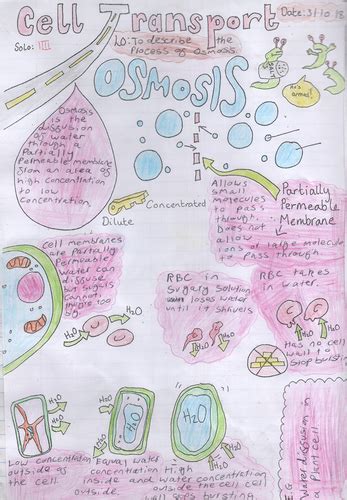 Cell Transport
Date: 3/10 18
Solo: III
LO: To describe the
Process of Osmosis.
OSMOSIS
He's armed!
Osmosis
is the
diffusion
of water
through a
Partially
Permeable membrane
from an area of
high concentration
to low
concentration.
Dilute
Concentrated
Allows
small
molecules
to pass
through...
Does not
allow
ions or large molecule
to pass through.
Partially
Permeable
Membrane
Cell membranes
are partially
Permeable
Water can
diffuse
but sugars
cannot
they're too
big
H2O
H2O
RBC in
sugary solution
loses water
until it shrivels
H2O
H2O
RBC takes
in water.
H2O
H2O
Has no cell
wall to
stop bursting
H2O
H2O
H2O
H2O
H2O
H2O
Low concentration
outside of
the cell
Equal water
concentration
inside and
outside.
High
water concentration
outside the cell
wall
bursting
Water diffusion in
Plant cell